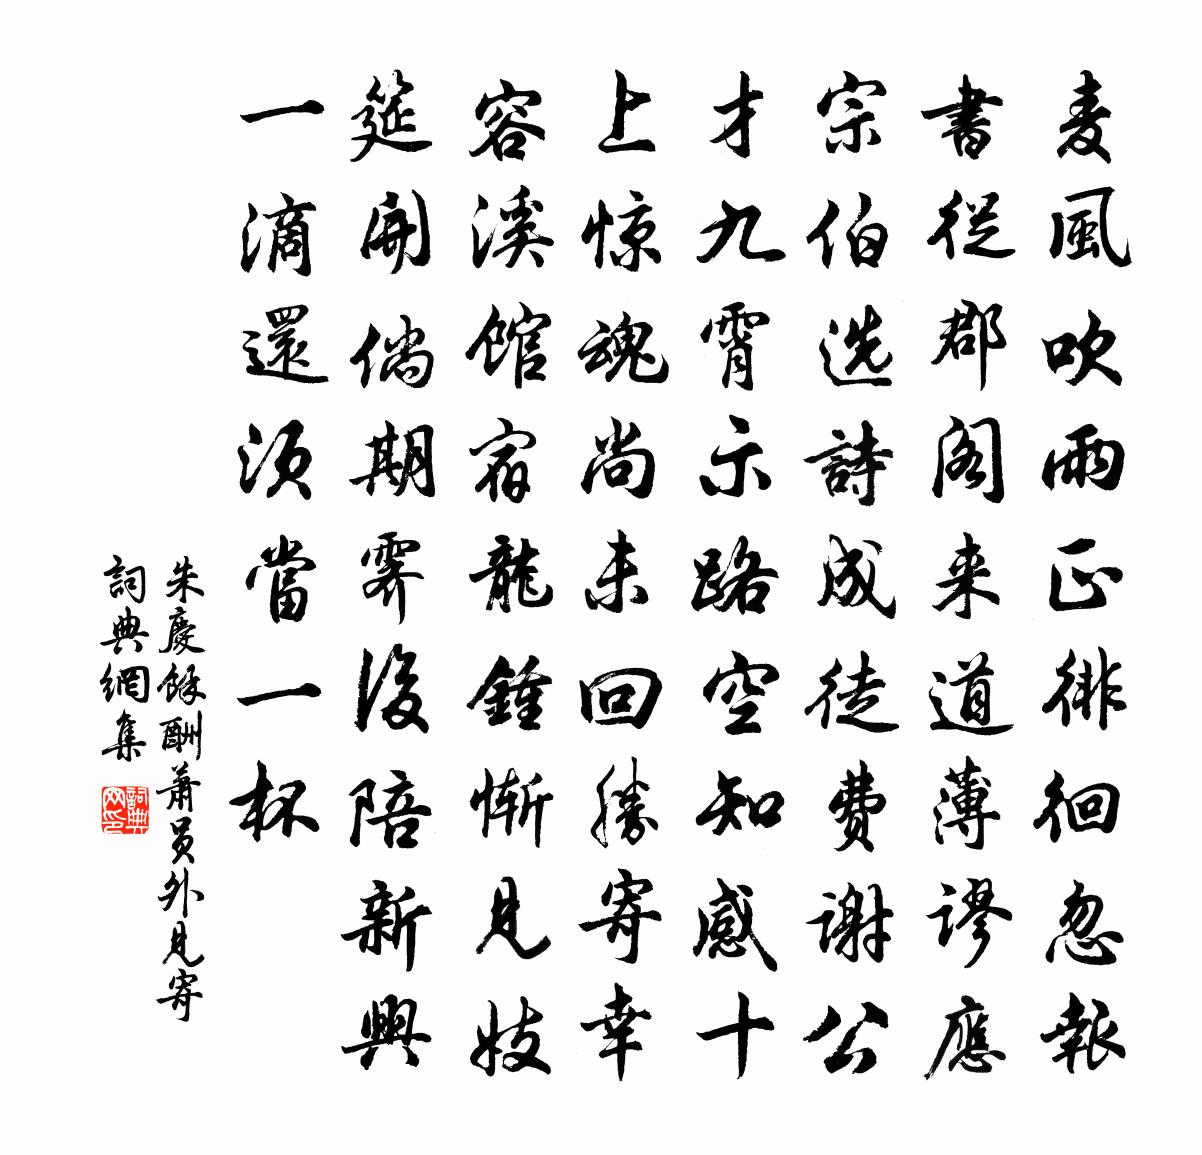 麦風吹雨正徘徊忽報
書從郡閣来道薄謬應
宗伯选詩成徒費謝公
才九霄示路空知感十
上惊魂尚未回勝寄幸
容溪館宿龍鍾慚見妓
筵開倘期霽後陪新興
一滴還須當一杯
朱慶餘酬蕭員外見寄
詞典網集
詞典网印